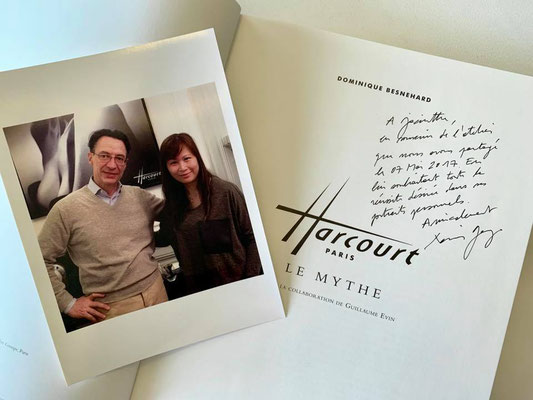 Harcourt
DOMINIQUE BESNEHARD
A
en souvenir de l'atelier
que nous avons partagé
le 07 Mai 2017 En
lui souhaitant toute la
réussite désirée dans ses
portraits personnels.
Amicalement
Harcourt
PARIS
LE MYTHE
LA COLLABORATION DE GUILLAUME EVIN